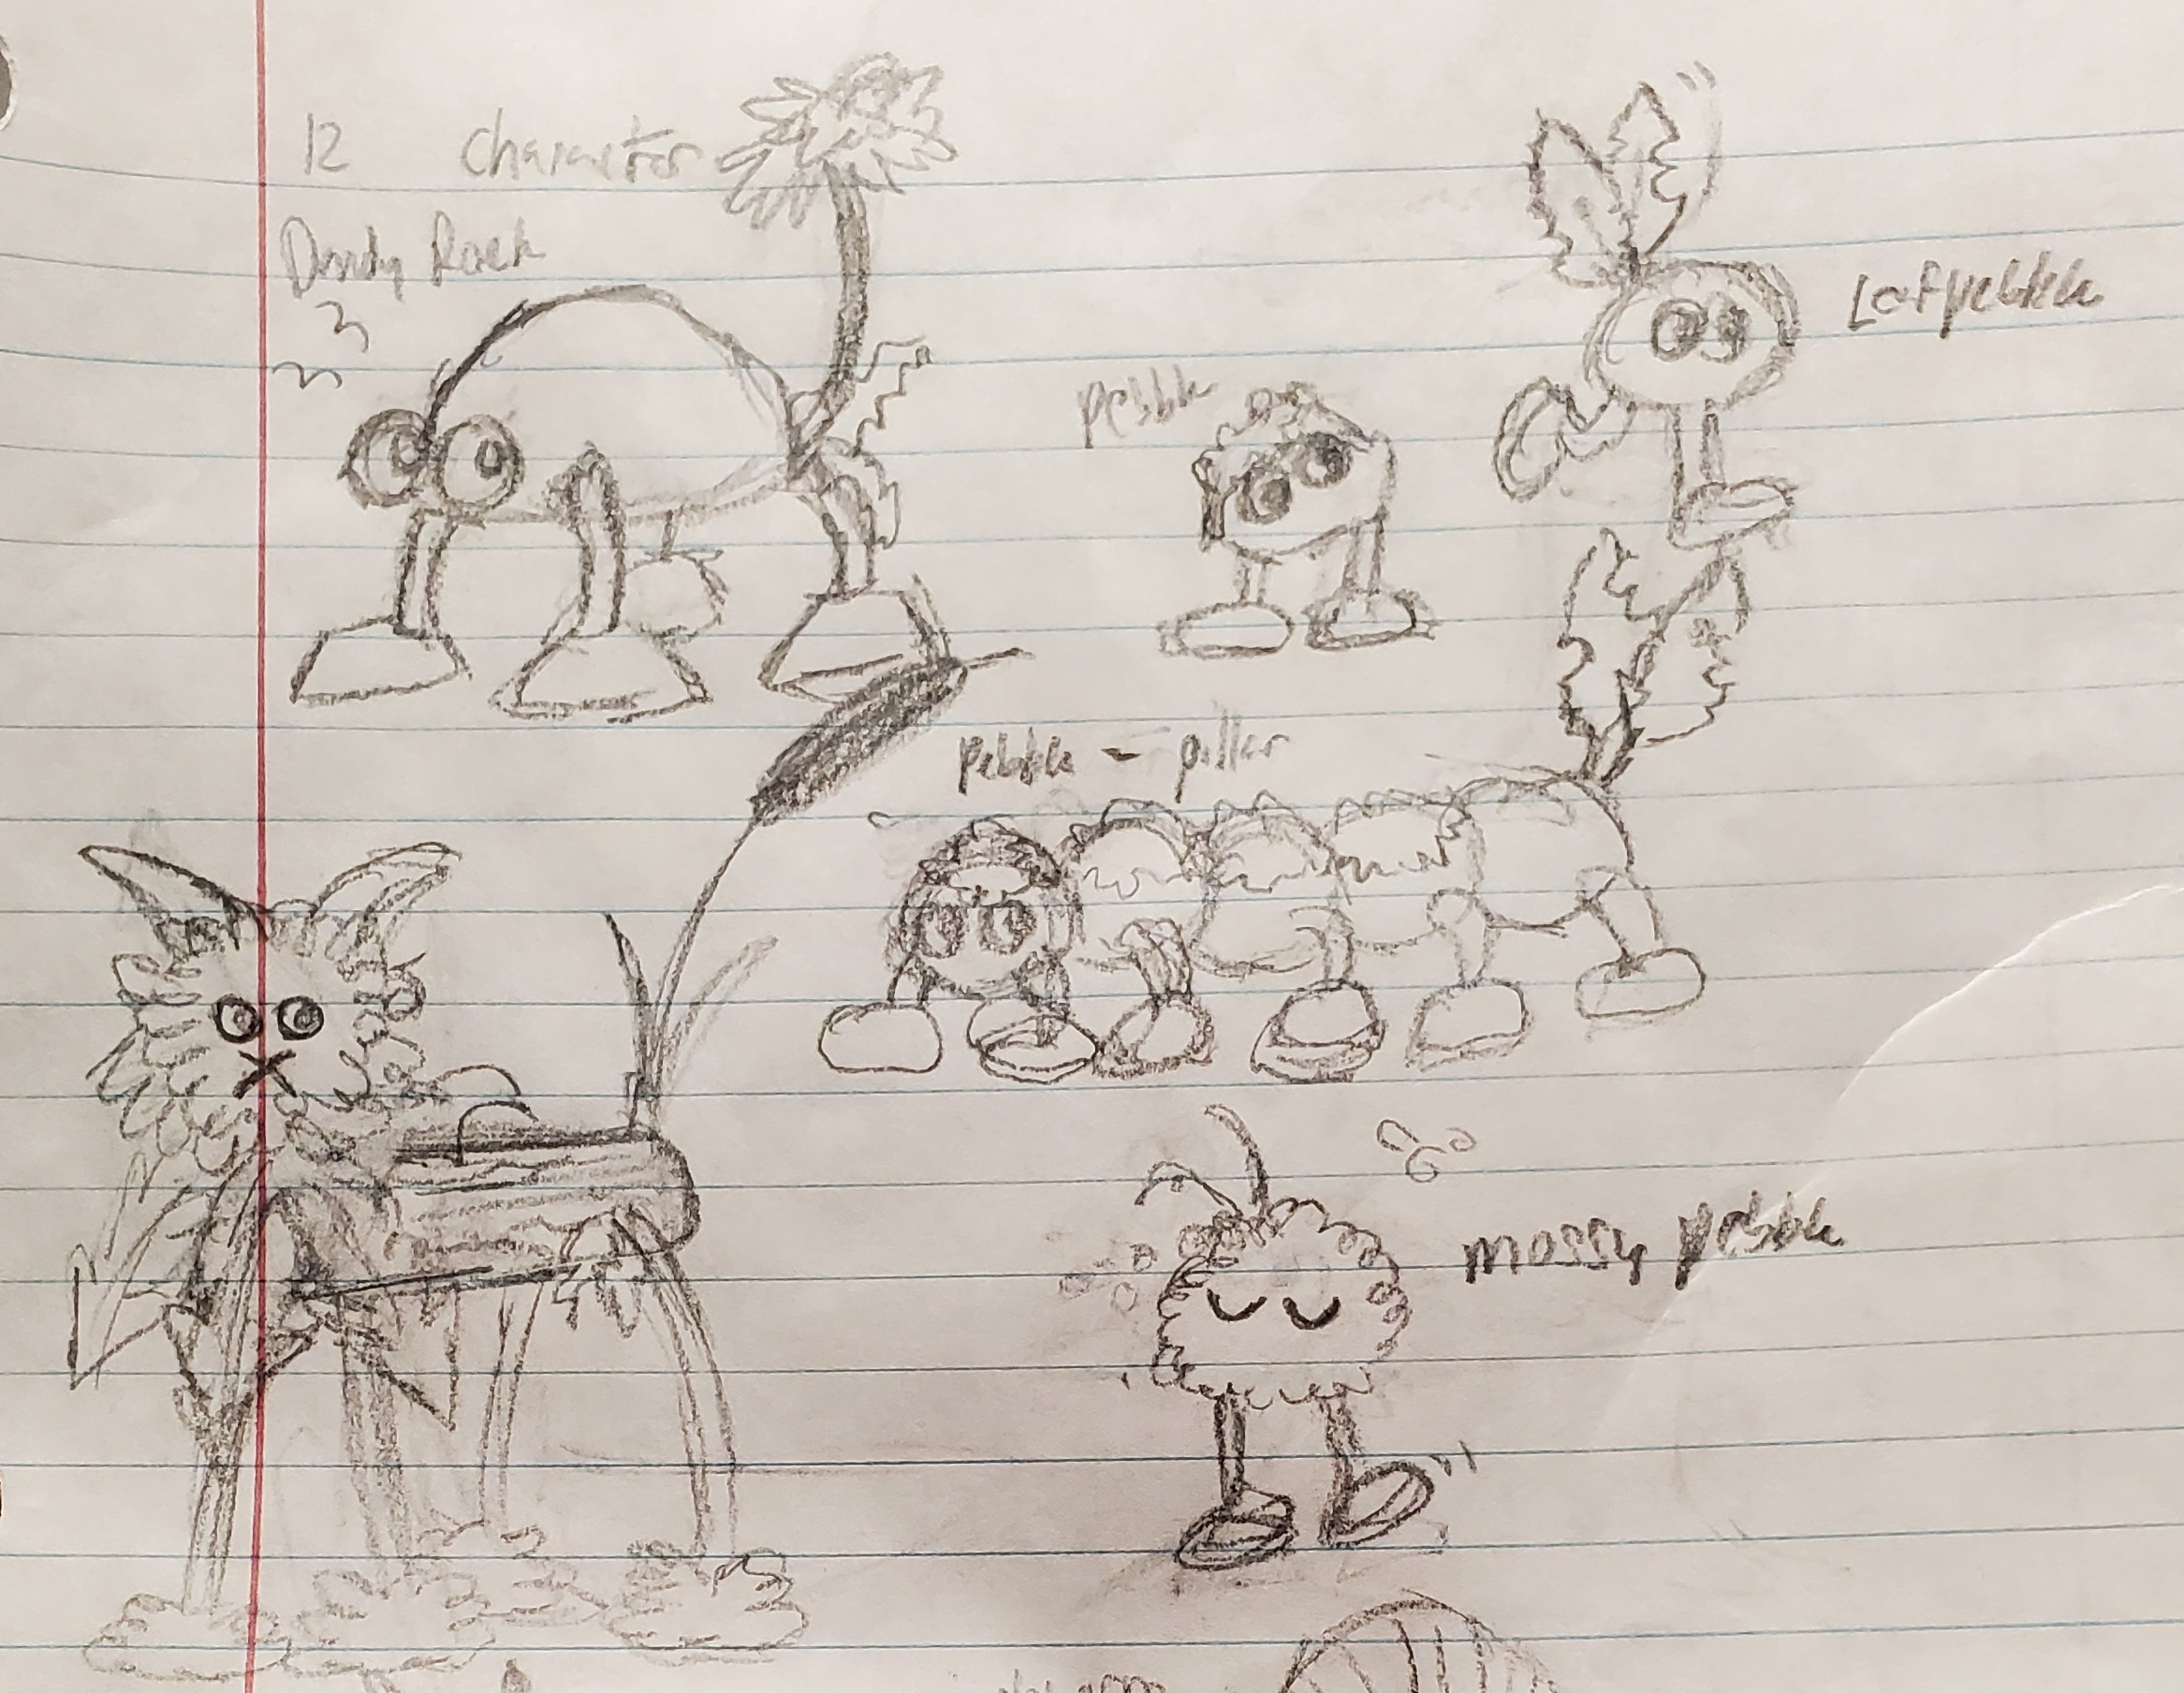 12 character
Dandy Rock
Lefpebble
pebble
pebble - pillar
mossy pebble